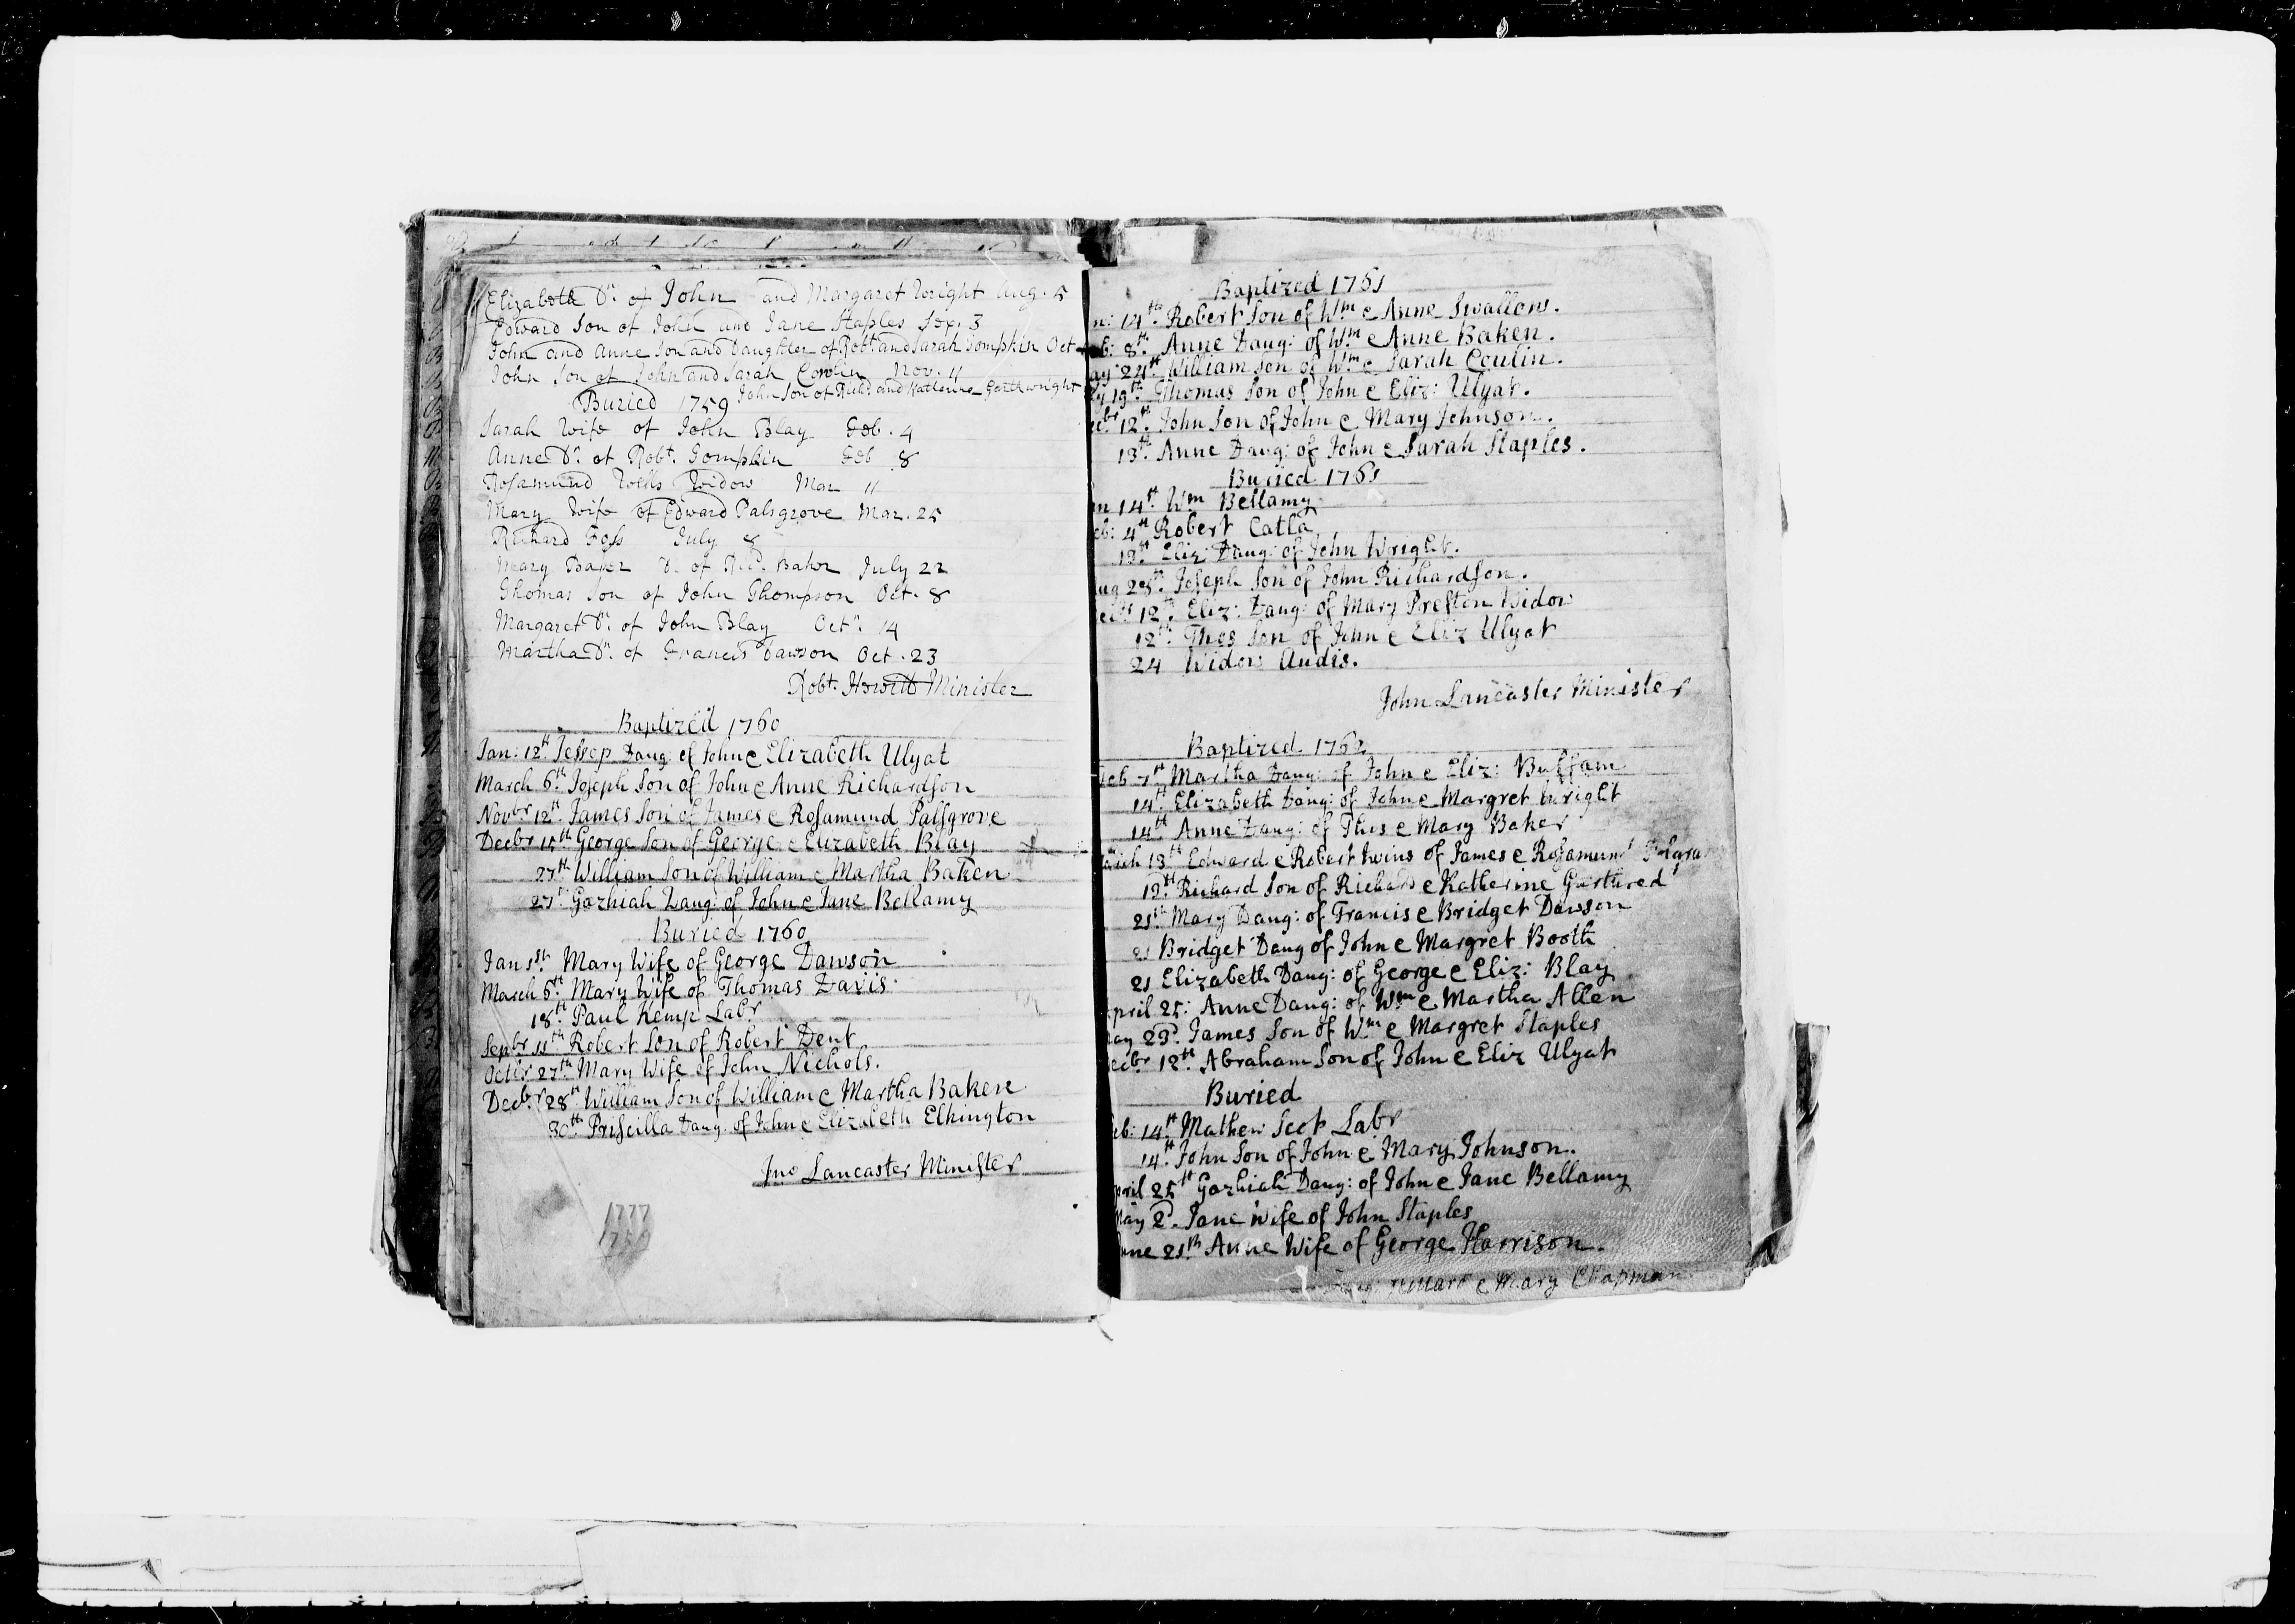 Elizabeth Dr. of John and Margaret Wright Aug. 5
Edward Son of John and Jane Staples Sep. 3
John and Anne Son and Daughter of Robt. and Sarah Tompkin Oct
John Son of John and Sarah Nov. 11
John Son of Richd. and Katherine Garthwright
Buried 1759
Sarah Wife of John Blay Feb. 4
Anne Dr. of Robt. Tompkin Feb 8
Rosamund Wells Widow Mar 11
Mary Wife of Edward Palsgrove Mar. 25
Richard Foss July 8
Mary Baker D. of Ricd. Baker July 22
Thomas Son of John Thompson Oct. 8
Margaret Dr. of John Blay Octr. 14
Martha Dr. of Francis Dawson Oct. 23
Robt. Howitt Minister
Baptized 1760
Jan: 12th Jessep Daug: of John & Elizabeth Ulyat
March 6th Joseph Son of John & Anne Richardson
Novbr 12th James Son of James & Rosamund Palsgrove
Decbr 15th George Son of George & Elizabeth Blay
27th William Son of William & Martha Baken
27th Gazhiah Daug: of John & Jane Bellamy
Buried 1760
Jan 1st. Mary Wife of George Dawson
March 6th Mary Wife of Thomas Davis.
18th Paul Kemp Labr
Sepbr 11th Robert Son of Robert Dent
Octbr 27th Mary Wife of John Nichols.
Decbr 28th William Son of William & Martha Baken
30th Priscilla Daug: of John & Elizabeth Elkington
Jno Lancaster Minister
1777
Baptized 1761
n: 14th Robert Son of Wm & Anne Swallow.
eb: 8th Anne Daug: of Wm & Anne Baken.
ay 24th William Son of Wm & Sarah Coulin.
ly 19th Thomas Son of John & Eliz: Ulyat.
cbr 12th John Son of John & Mary Johnson.
13th Anne Daug: of John & Sarah Staples.
Buried 1761
n 14th Wm Bellamy
eb: 4th Robert Catla
13th Eliz: Daug: of John Wright.
ug 25th Joseph Son of John Richardson.
ecbr 12th Eliz: Daug: of Mary Preston Widow
12th Thos Son of John & Eliz Ulyat
24 Widow Audis.
John Lancaster Minister
Baptized 1762
Feb 7th Martha Daug: of John & Eliz: Buffam
14th Elizabeth Daug: of John & Margret Wright
14th Anne Daug: of Thos & Mary Baker
arch 13th Edward & Robert twins of James & Rosamund
13th Richard Son of Richard & Katherine Gartured
21st Mary Daug: of Francis & Bridget Dawson
21 Bridget Daug of John & Margret Booth
21 Elizabeth Daug: of George & Eliz: Blay
pril 25: Anne Daug: of Wm & Martha Allen
ay 23d James Son of Wm & Margret Staples
ecbr 18th Abraham Son of John & Eliz Ulyat
Buried
eb: 14th Mathew Scot Labr
14th John Son of John & Mary Johnson.
pril 25th Gazhiah Daug: of John & Jane Bellamy
May 2d. Jane Wife of John Staples
une 21th Anne Wife of George Harrison.
& Mary Chapman